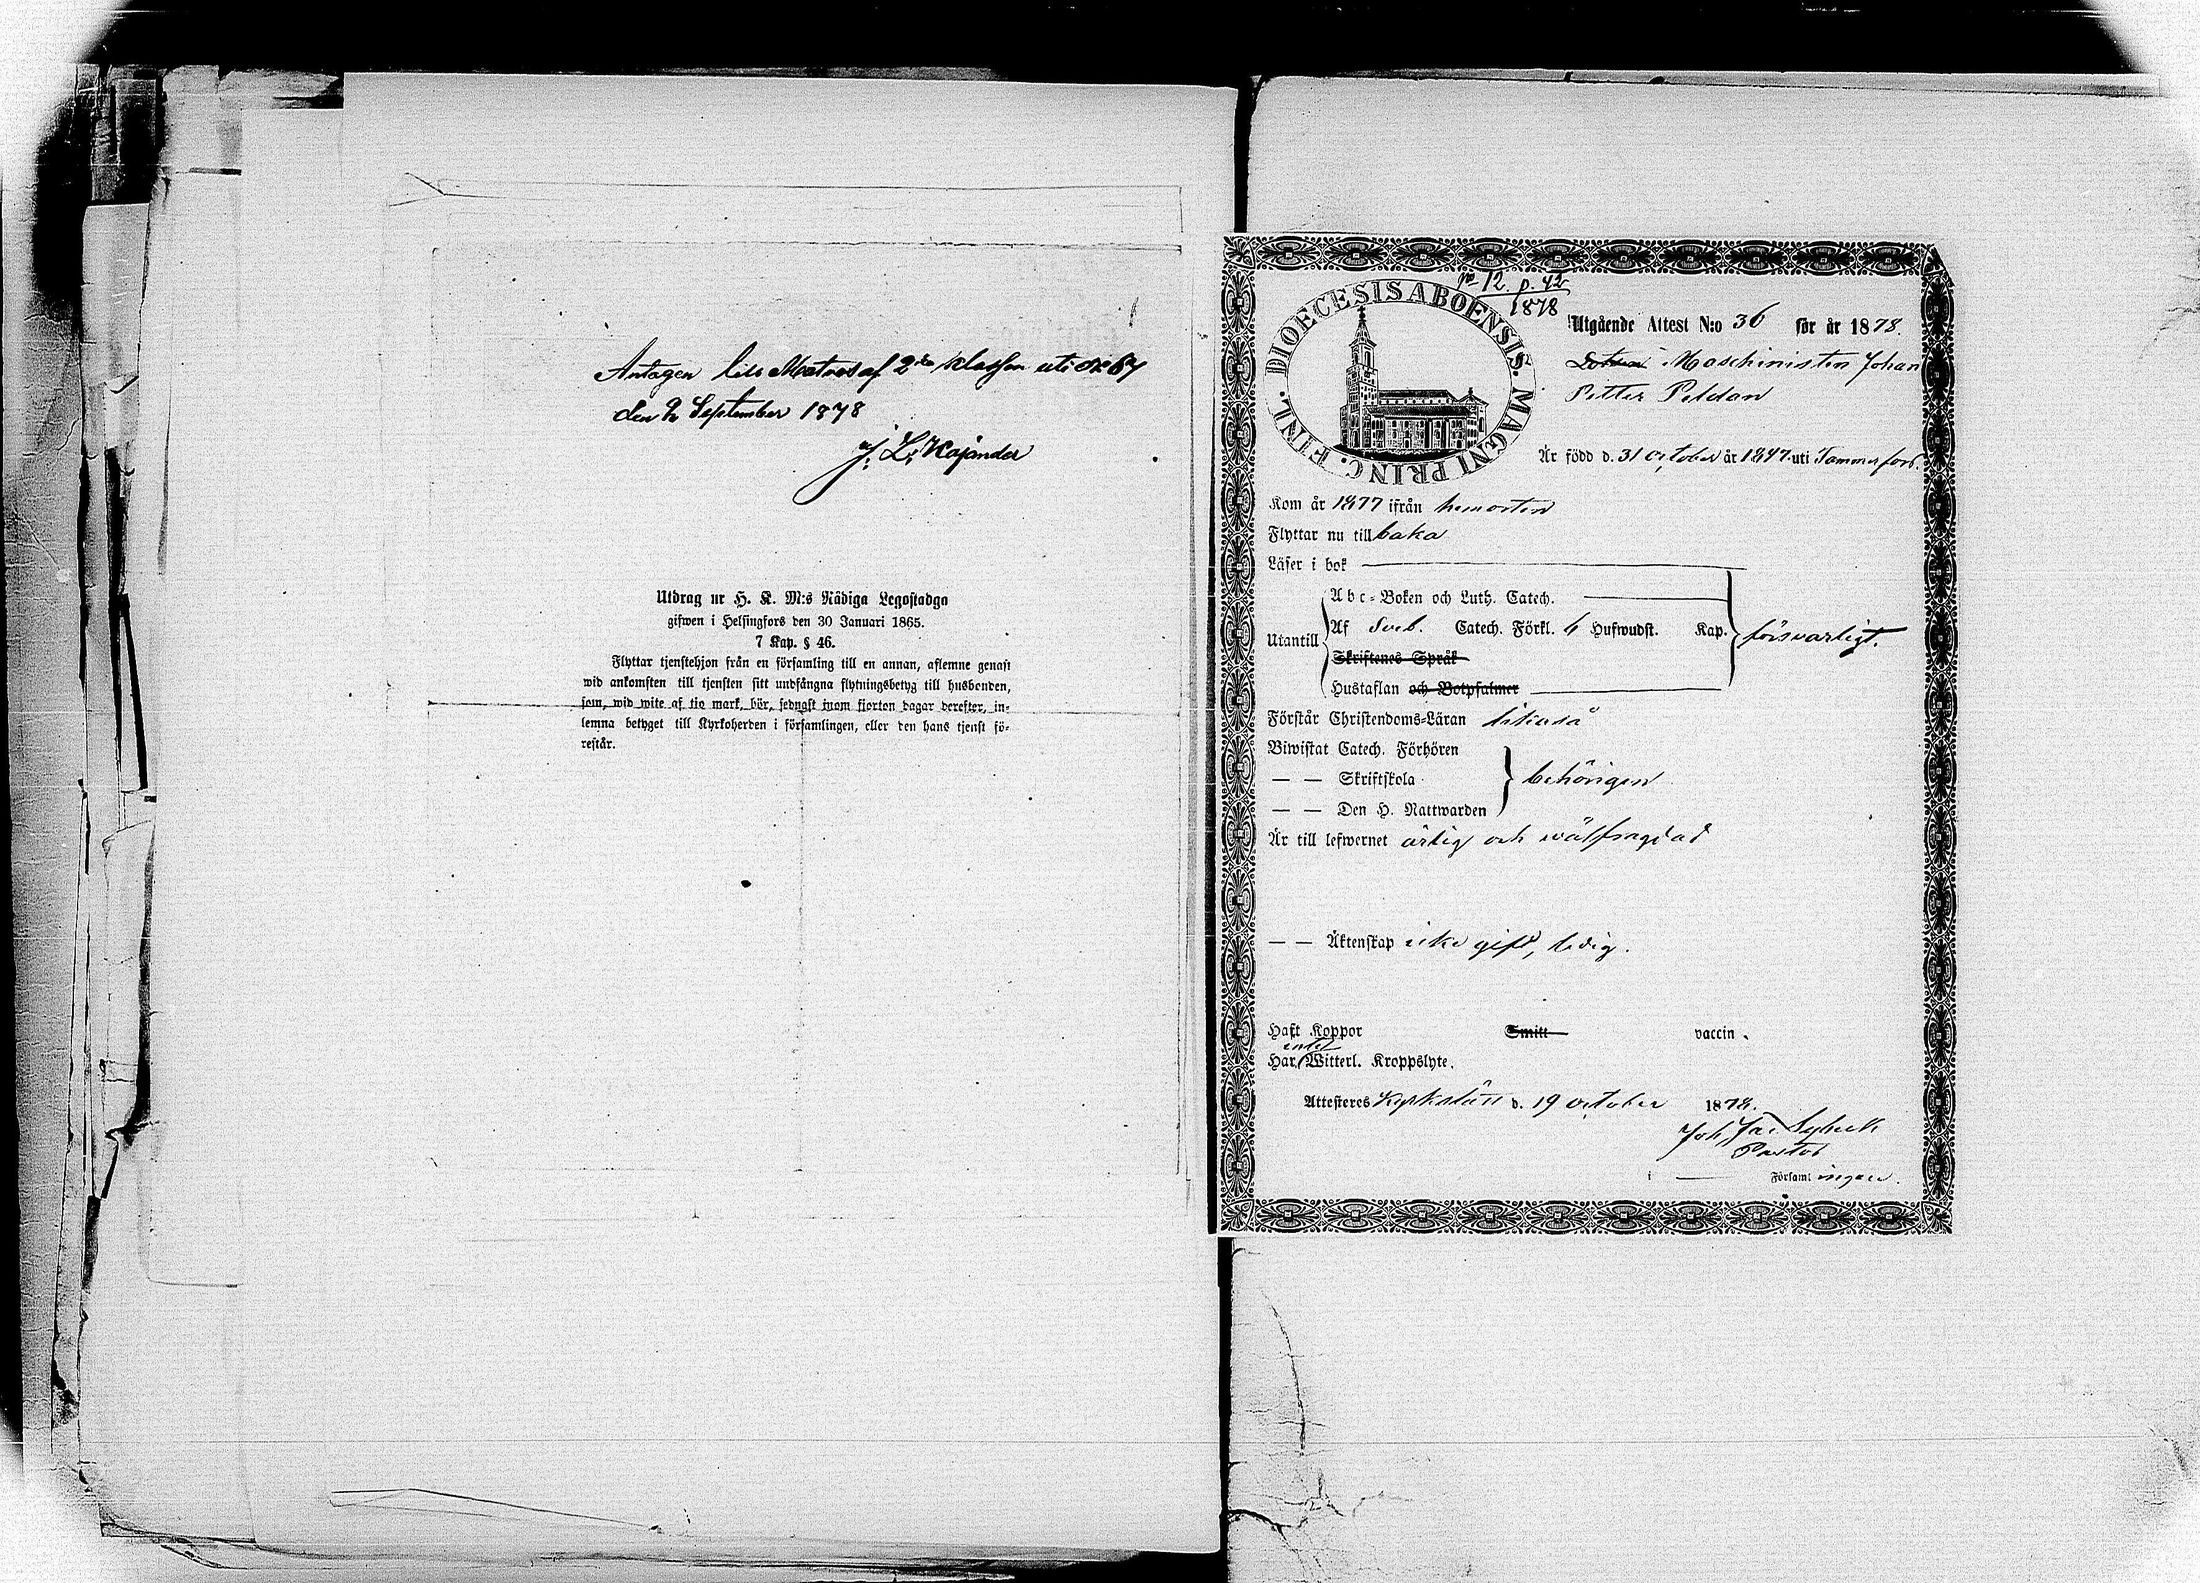 Antagen till Matros af 2dra klassen uti No 67
den 2 September 1878
J. L. Kajander
Utdrag ur H. K. M:s Nådiga Legostadga
gifwen i Helsingfors den 30 Januari 1865.
7 Kap. § 46.
Flyttar tjenstehjon från en församling till en annan, aflemne genast
wid ankomsten till tjensten sitt undfångna flyttningsbetyg till husbonden,
som, wid wite af tio mark, bör, sednast inom fjorton dagar derefter, in-
lemna betyget till Kyrkoherden i församlingen, eller den hans tjenst fö-
restår.
No 12. p. 42
1878
DIOECESIS ABOENSIS. MAGNI PRINC. FINL.
Utgående Attest N:o 36 för år 1878.
Maschinisten Johan
Petter Peldan
Är född d. 31 October år 1847 uti Tammerfors.
Kom år 1877 ifrån hemorten
Flyttar nu tillbaka
Läser i bok
Utantill
Abc-Boken och Luth. Catech.
Af Sveb. Catech. Förkl. 6 Hufwudst. Kap. försvarligt.
Skriftenes Språk
Hustaflan och Botpsalmer
Förstår Christendoms-Läran likaså
Biwistat Catech. Förhören
— — Skriftskola behörigen
— — Den H. Nattwarden
Är till lefwernet ärlig och wälfrägdad
— — Äktenskap icke gift, ledig.
Haft Koppor Smitt vaccin.
Har intet Witterl. Kroppslyte.
Attesteres Kyrkslätt d. 19 October 1878.
Joh. Jac. Sybeck
Pastor
i — Församlingen.